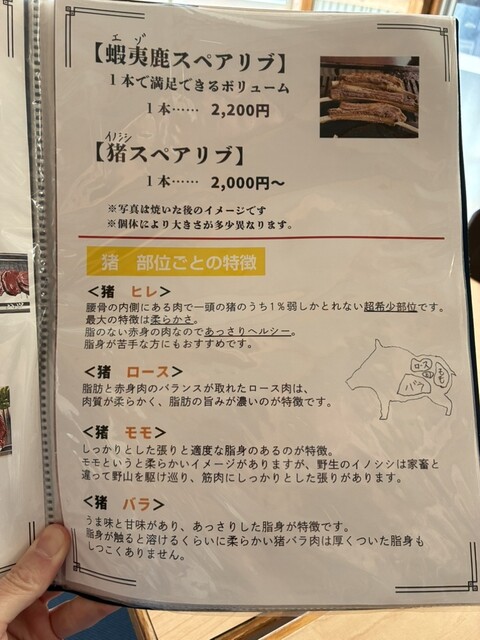 エゾ
【蝦夷鹿スペアリブ】
1本で満足できるボリューム
1本…… 2,200円
イノシシ
【猪スペアリブ】
1本…… 2,000円～
※写真は焼いた後のイメージです
※個体により大きさが多少異なります。
猪 部位ごとの特徴
＜猪 ヒレ＞
腰骨の内側にある肉で一頭の猪のうち1％弱しかとれない超希少部位です。
最大の特徴は柔らかさ。
脂のない赤身の肉なのであっさりヘルシー。
脂身が苦手な方にもおすすめです。
＜猪 ロース＞
脂肪と赤身肉のバランスが取れたロース肉は、
肉質が柔らかく、脂肪の旨みが濃いのが特徴です。
ロース
ヒレ
バラ
モモ
＜猪 モモ＞
しっかりとした張りと適度な脂身のあるのが特徴。
モモというと柔らかいイメージがありますが、野生のイノシシは家畜と
違って野山を駆け巡り、筋肉にしっかりとした張りがあります。
＜猪 バラ＞
うま味と甘味があり、あっさりした脂身が特徴です。
脂身が触ると溶けるくらいに柔らかい猪バラ肉は厚くついた脂身も
しつこくありません。